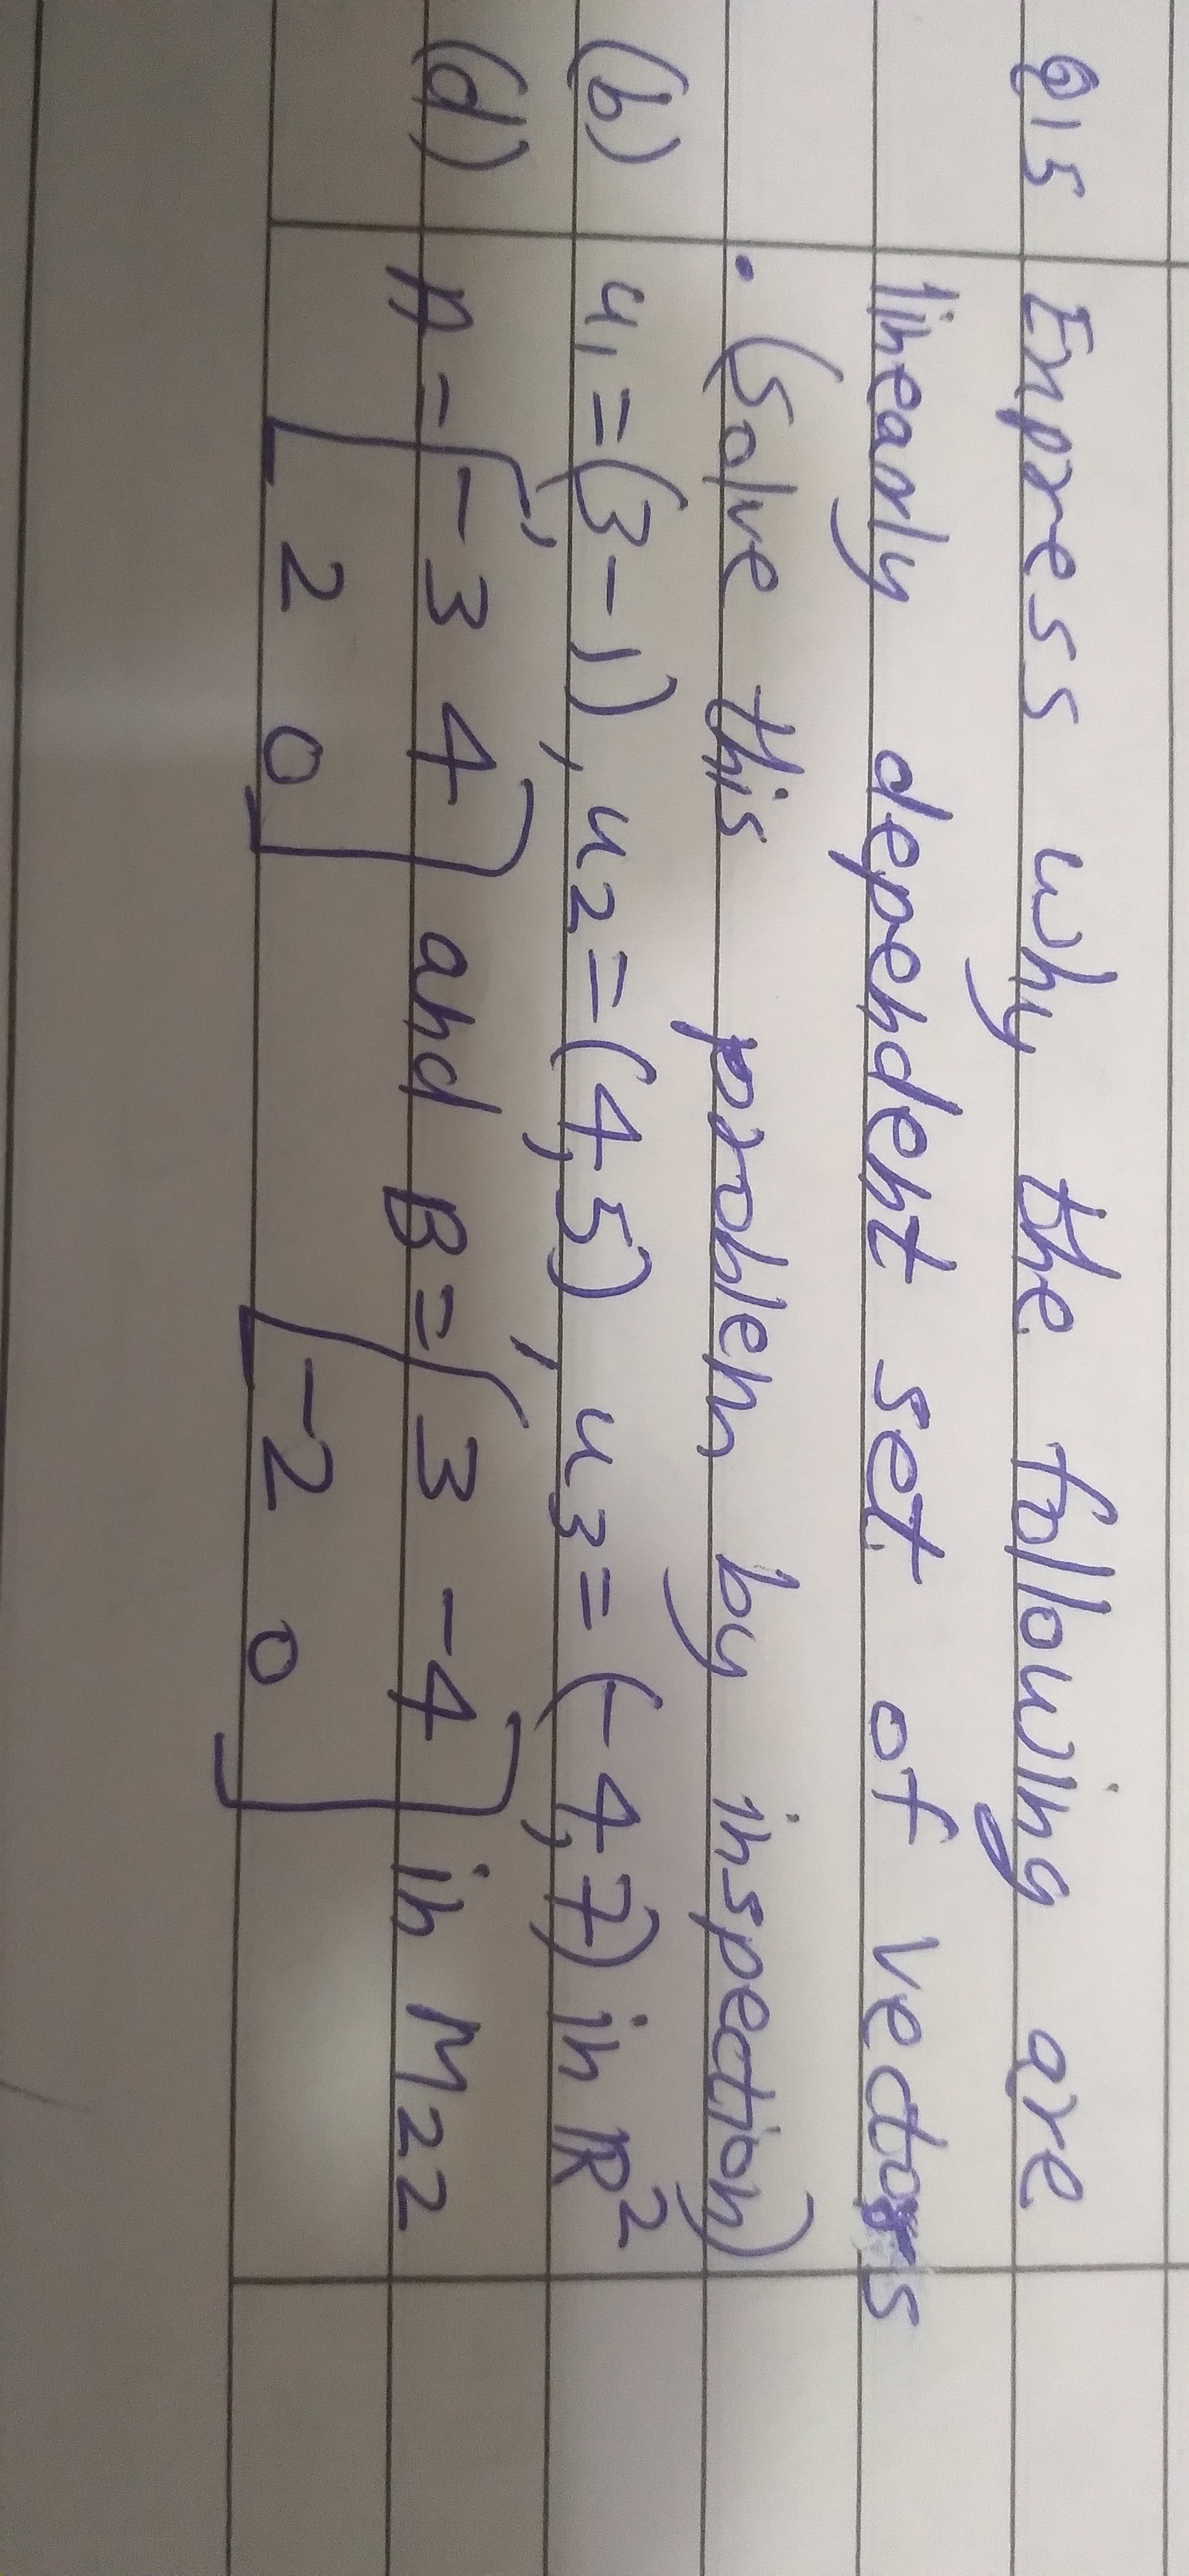 Q15 Enpress why the following are
linearly dependent set of vectors
. (Solve this problem by inspection)
(b) u1 = (3,-1), u2 = (4,5), u3 = (-4,7) in R²
(d) A = [-3 4] and B = [3 -4] in M22
[2 0] [-2 0]